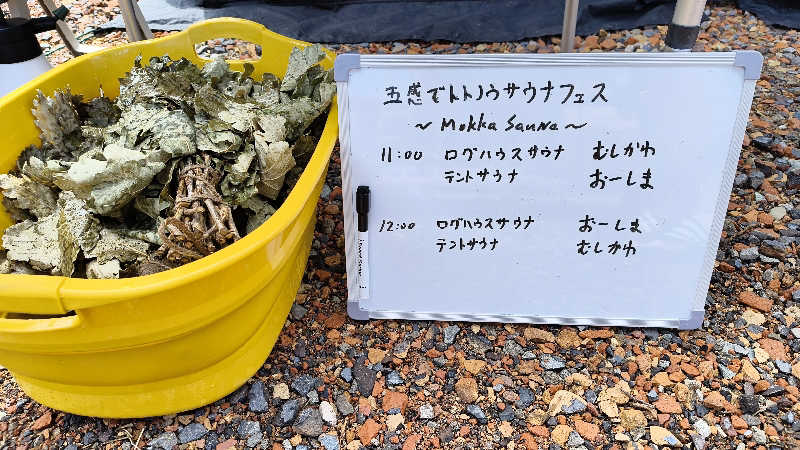 五感でトトノウサウナフェス
~ Mokka Sauna ~
11:00 ログハウスサウナ むしかわ
テントサウナ おーしま
12:00 ログハウスサウナ おーしま
テントサウナ むしかわ